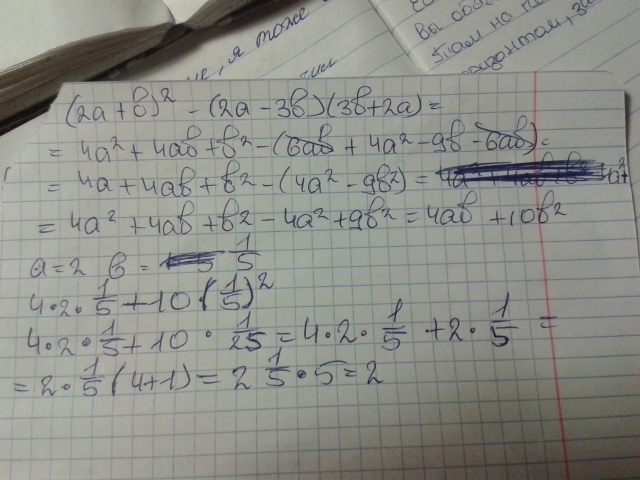 не, я тоже
Вы обя
Там на по
оризонтом, за
(2a+b)² - (2a-3b)(3b+2a)=
= 4a² + 4ab + b² - (6ab + 4a² - 9b - 6ab) =
= 4a + 4ab + b² - (4a² - 9b²) =
= 4a² + 4ab + b² - 4a² + 9b² = 4ab + 10b²
a=2 b = 1/5
4·2·1/5 + 10·(1/5)²
4·2·1/5 + 10·1/25 = 4·2·1/5 + 2·1/5 =
= 2·1/5(4+1) = 2 1/5·5 = 2